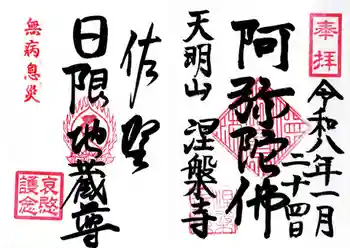 奉拝
令和八年一月二十四日
阿弥陀佛
天明山 涅槃寺
佐賀
日限地蔵尊
無病息災
哀愍護念